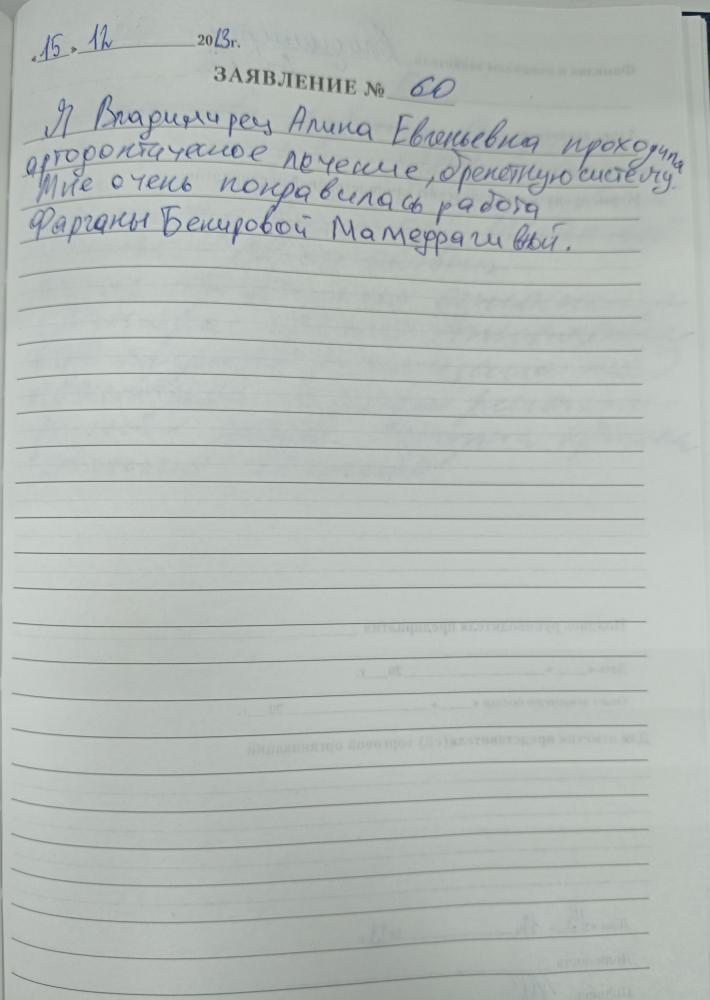 «15» 12 2013г.
ЗАЯВЛЕНИЕ № 60
Я Владимирец Алина Евгеньевна проходила
ортодонтическое лечение, брекетную систему.
Мне очень понравилась работа
Фарганы Бекировой Мамедрагивый.